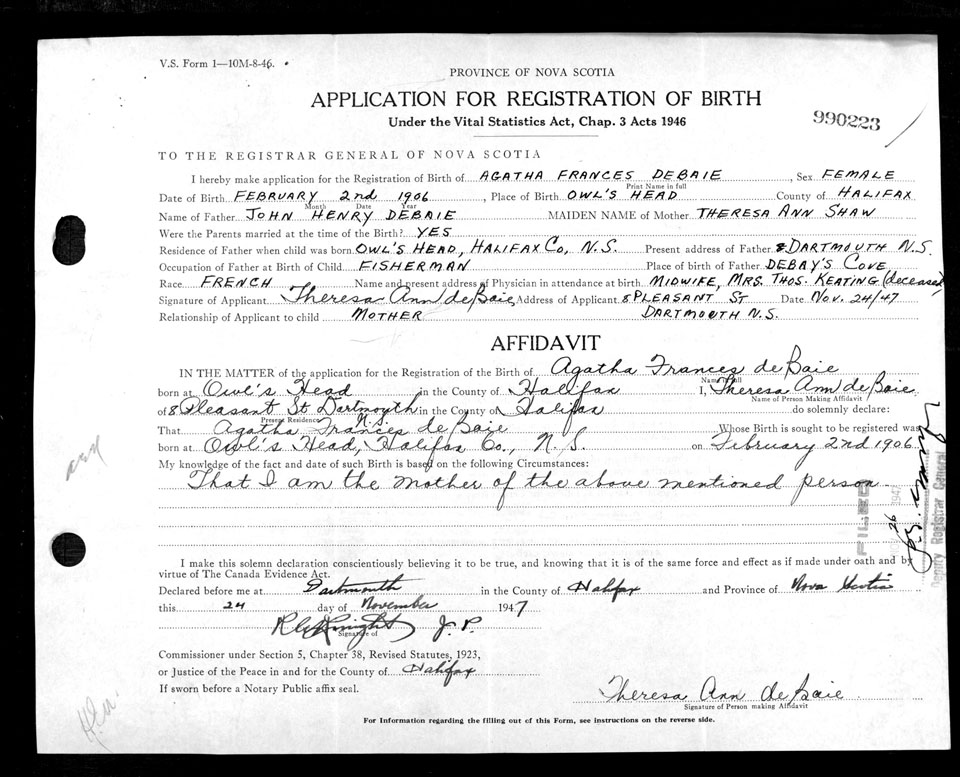 V.S. Form 1—10M-8-46.
PROVINCE OF NOVA SCOTIA
APPLICATION FOR REGISTRATION OF BIRTH
Under the Vital Statistics Act, Chap. 3 Acts 1946
990223
TO THE REGISTRAR GENERAL OF NOVA SCOTIA
I hereby make application for the Registration of Birth of AGATHA FRANCES DEBAIE, Sex FEMALE
Print Name in full
Date of Birth FEBRUARY 2nd 1906, Place of Birth OWL'S HEAD County of HALIFAX
Month Date Year
Name of Father JOHN HENRY DEBAIE MAIDEN NAME of Mother THERESA ANN SHAW
Were the Parents married at the time of the Birth? YES
Residence of Father when child was born OWL'S HEAD, HALIFAX CO, N.S. Present address of Father 8 DARTMOUTH N.S.
Occupation of Father at Birth of Child FISHERMAN Place of birth of Father DEBAY'S COVE
Race FRENCH Name and present address of Physician in attendance at birth MIDWIFE, MRS. THOS. KEATING (deceased)
Signature of Applicant Theresa Ann de Baie Address of Applicant 8 PLEASANT ST Date NOV. 24/47
Relationship of Applicant to child MOTHER DARTMOUTH N.S.
AFFIDAVIT
IN THE MATTER of the application for the Registration of Birth of Agatha Frances de Baie
Name in full
born at Owl's Head in the County of Halifax I, Theresa Ann de Baie
Name of Person Making Affidavit
of 8 Pleasant St Dartmouth in the County of Halifax do solemnly declare:
Present Residence
That Agatha Frances de Baie Whose Birth is sought to be registered was
born at Owl's Head, Halifax Co., N. S. on February 2nd 1906
My knowledge of the fact and date of such Birth is based on the following Circumstances:
That I am the mother of the above mentioned person
FILED
26 1947
Deputy Registrar General
I make this solemn declaration conscientiously believing it to be true, and knowing that it is of the same force and effect as if made under oath and by
virtue of The Canada Evidence Act.
Declared before me at Dartmouth in the County of Halifax and Province of Nova Scotia
this 24 day of November 1947
Signature of J. P.
Commissioner under Section 5, Chapter 38, Revised Statutes, 1923,
or Justice of the Peace in and for the County of Halifax
If sworn before a Notary Public affix seal.
Theresa Ann de Baie
Signature of Person making Affidavit
For Information regarding the filling out of this Form, see instructions on the reverse side.